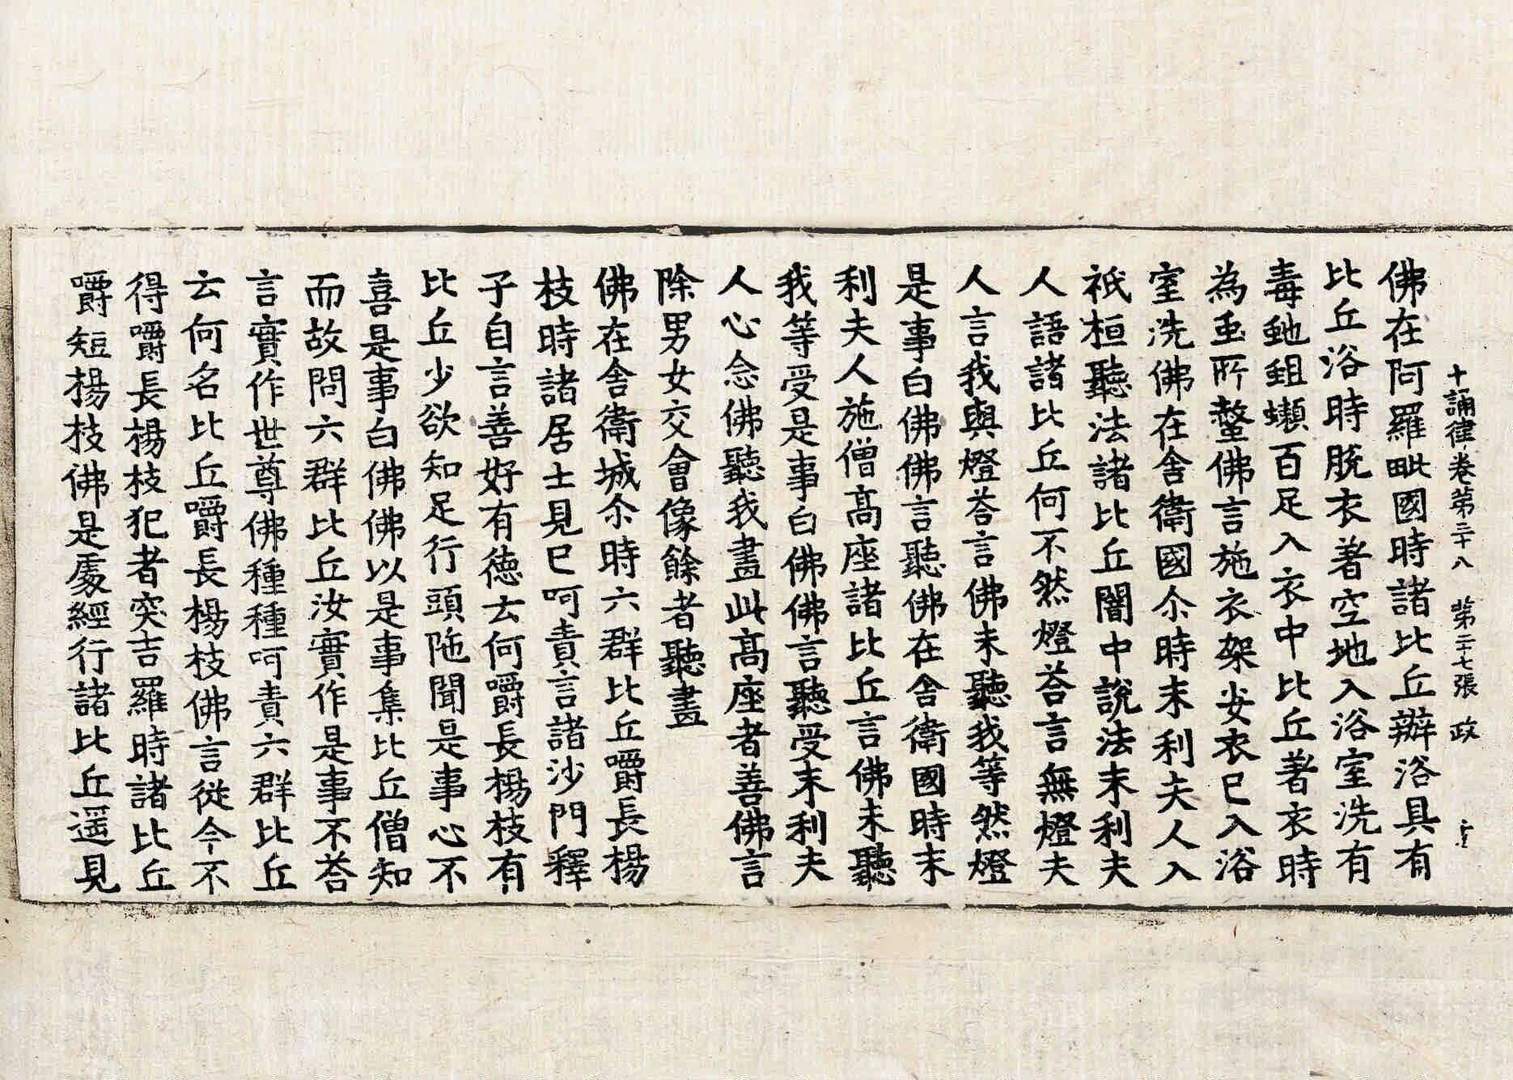 十誦律卷第三十八 第二十七張 政
佛在阿羅毗國時諸比丘辦浴具有
比丘浴時脫衣著空地入浴室洗有
毒虵蛆蠍百足入衣中比丘著衣時
為蚤所螫佛言施衣架安衣已入浴
室洗佛在舍衛國尒時末利夫人入
祇桓聽法諸比丘闇中說法末利夫
人語諸比丘何不然燈荅言無燈夫
人言我與燈荅言佛未聽我等然燈
是事白佛佛言聽佛在舍衛國時末
利夫人施僧髙座諸比丘言佛未聽
我等受是事白佛佛言聽受末利夫
人心念佛聽我畫此髙座者善佛言
除男女交會像餘者聽畫
佛在舍衛城尒時六群比丘嚼長楊
枝時諸居士見已呵責言諸沙門釋
子自言善好有德云何嚼長楊枝有
比丘少欲知足行頭陁聞是事心不
喜是事白佛佛以是事集比丘僧知
而故問六群比丘汝實作是事不荅
言實作世尊佛種種呵責六群比丘
云何名比丘嚼長楊枝佛言從今不
得嚼長楊枝犯者突吉羅時諸比丘
嚼短楊枝佛是處經行諸比丘遥見